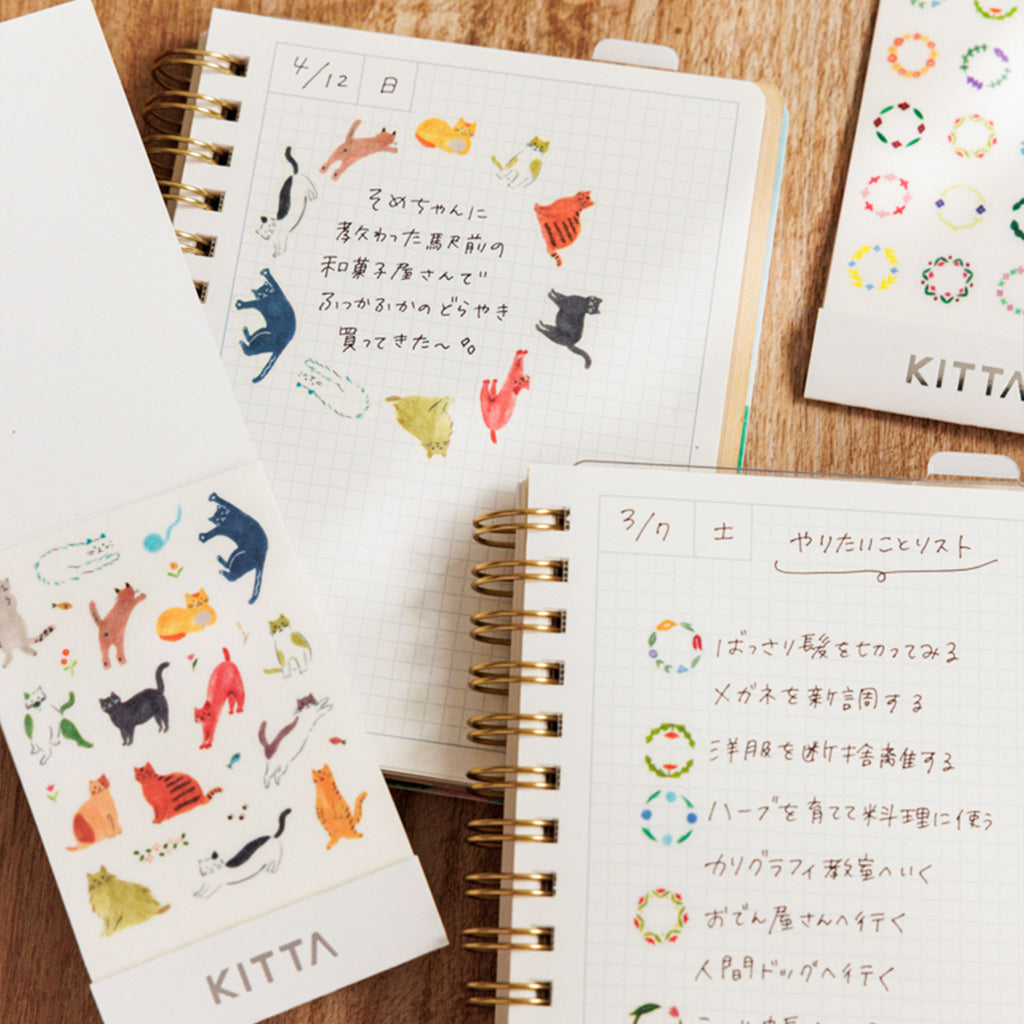 4/12 日
そめちゃんに
教わった駅前の
和菓子屋さんで
ふっかふかのどらやき
買ってきた〜
KITTA
KITTA
3/7 土 やりたいことリスト
ばっさり髪を切ってみる
メガネを新調する
洋服を断捨離する
ハーブを育てて料理に使う
カリグラフィ教室へいく
おでん屋さんへ行く
人間ドッグへ行く